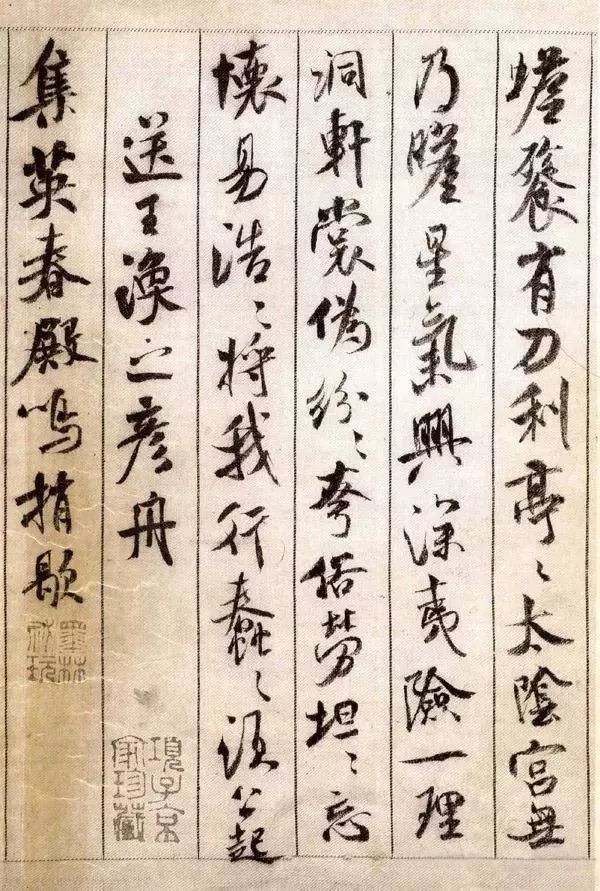 蟾餮有刀利亭〻太陰宮無
乃瞻星氣興深夷險一理
洞軒裳偽紛〻夸俗勞坦〻忘
懷易浩〻將我行蠢〻須公起
送王渙之彥舟
項子京家珍藏
集英春殿鳴捎歇
墨林祕玩